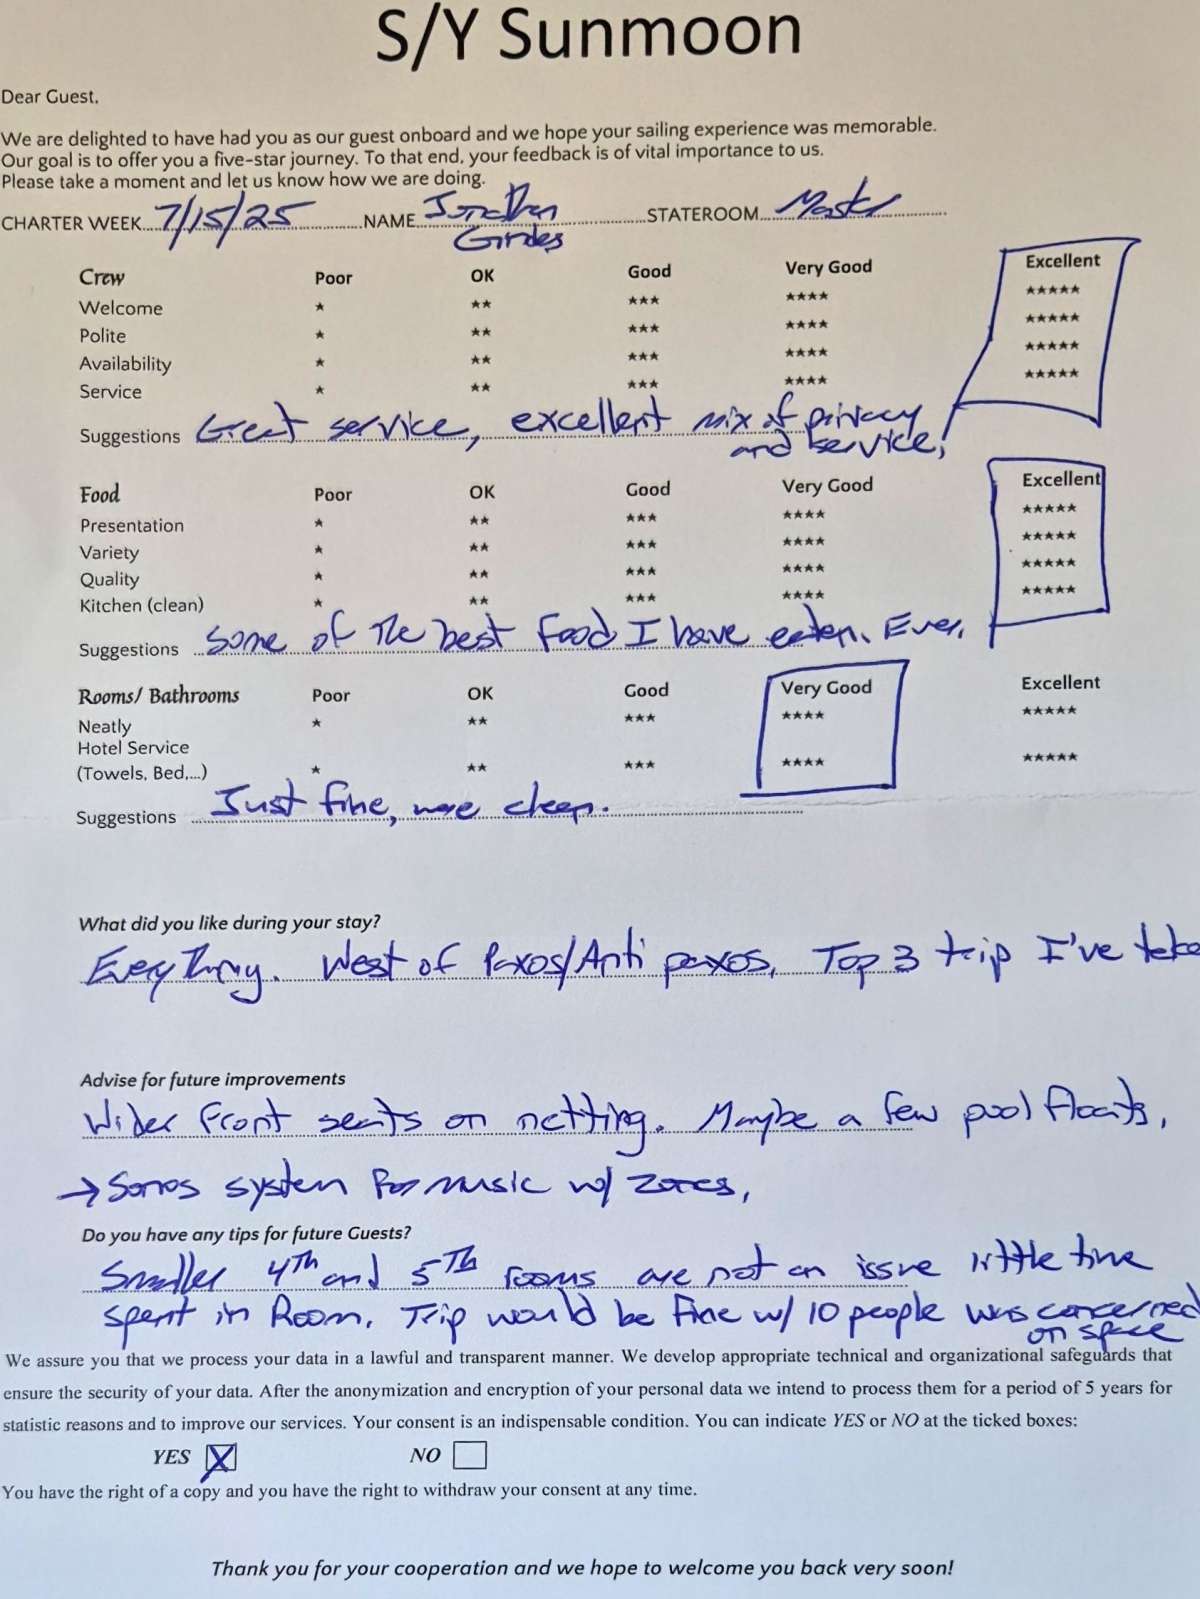 S/Y Sunmoon
Dear Guest,
We are delighted to have had you as our guest onboard and we hope your sailing experience was memorable.
Our goal is to offer you a five-star journey. To that end, your feedback is of vital importance to us.
Please take a moment and let us know how we are doing.
CHARTER WEEK 7/15/25 NAME Jonathan STATEROOM Master
Crew Poor OK Good Very Good Excellent
Welcome ★ ★★ ★★★ ★★★★ ★★★★★
Polite ★ ★★ ★★★ ★★★★ ★★★★★
Availability ★ ★★ ★★★ ★★★★ ★★★★★
Service ★ ★★ ★★★ ★★★★ ★★★★★
Suggestions Great service, excellent mix of privacy
and service,
Food Poor OK Good Very Good Excellent
Presentation ★ ★★ ★★★ ★★★★ ★★★★★
Variety ★ ★★ ★★★ ★★★★ ★★★★★
Quality ★ ★★ ★★★ ★★★★ ★★★★★
Kitchen (clean) ★ ★★ ★★★ ★★★★ ★★★★★
Suggestions Some of the best food I have eaten. Ever.
Rooms/ Bathrooms Poor OK Good Very Good Excellent
Neatly ★ ★★ ★★★ ★★★★ ★★★★★
Hotel Service
(Towels, Bed,...) ★ ★★ ★★★ ★★★★ ★★★★★
Suggestions Just fine, were clean.
What did you like during your stay?
Everything. West of Paxos/Anti paxos, Top 3 trip I've take
Advise for future improvements
Wider front seats on netting. Maybe a few pool floats,
→ Sonos system for music w/ zones,
Do you have any tips for future Guests?
Smaller 4th and 5th rooms are not an issue little time
spent in Room. Trip would be fine w/ 10 people was concerned
on space
We assure you that we process your data in a lawful and transparent manner. We develop appropriate technical and organizational safeguards that
ensure the security of your data. After the anonymization and encryption of your personal data we intend to process them for a period of 5 years for
statistic reasons and to improve our services. Your consent is an indispensable condition. You can indicate YES or NO at the ticked boxes:
YES X NO
You have the right of a copy and you have the right to withdraw your consent at any time.
Thank you for your cooperation and we hope to welcome you back very soon!